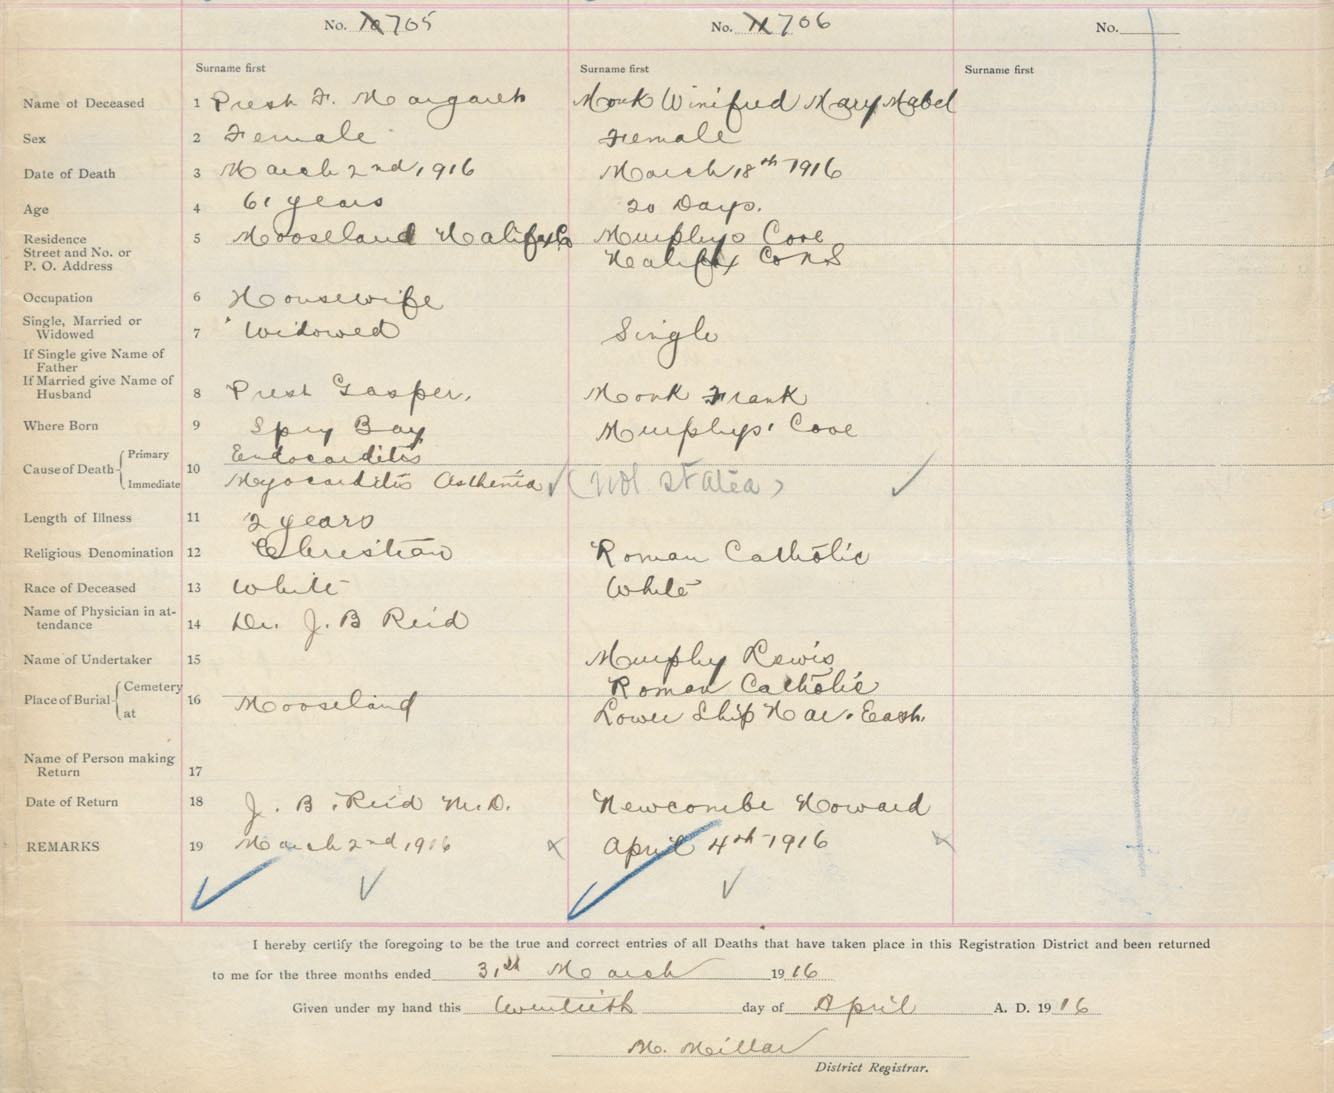 No. 10 705 No. 11 706 No.
Surname first Surname first Surname first
Name of Deceased 1 Presh F. Margareth Monk Winifred Mary Mabel
Sex 2 Female Female
Date of Death 3 March 2nd, 1916 March 18th 1916
Age 4 61 years 20 Days.
Residence 5 Mooseland Halifax Co Murphys Cove
Street and No. or
P. O. Address Halifax Co N S
Occupation 6 Housewife
Single, Married or
Widowed 7 Widowed Single
If Single give Name of
Father
If Married give Name of
Husband 8 Presh Gasper, Monk Frank
Where Born 9 Spry Bay Murphys' Cove
Cause of Death Primary Endocarditis
10 (not stated)
Immediate Myocarditis Asthenia
Length of Illness 11 2 years
Religious Denomination 12 Christian Roman Catholic
Race of Deceased 13 White White
Name of Physician in at-
tendance 14 Dr. J. B Reid
Name of Undertaker 15 Murphy Lewis
Place of Burial Cemetery Roman Catholic
at 16 Mooseland Lower Ship Har. East.
Name of Person making
Return 17
Date of Return 18 J. B. Reid M.D. Newcombe Howard
REMARKS 19 March 2nd, 1916 April 4th 1916
I hereby certify the foregoing to be the true and correct entries of all Deaths that have taken place in this Registration District and been returned
to me for the three months ended 31st March 1916
Given under my hand this twentieth day of April A. D. 1916
M. Millar
District Registrar.